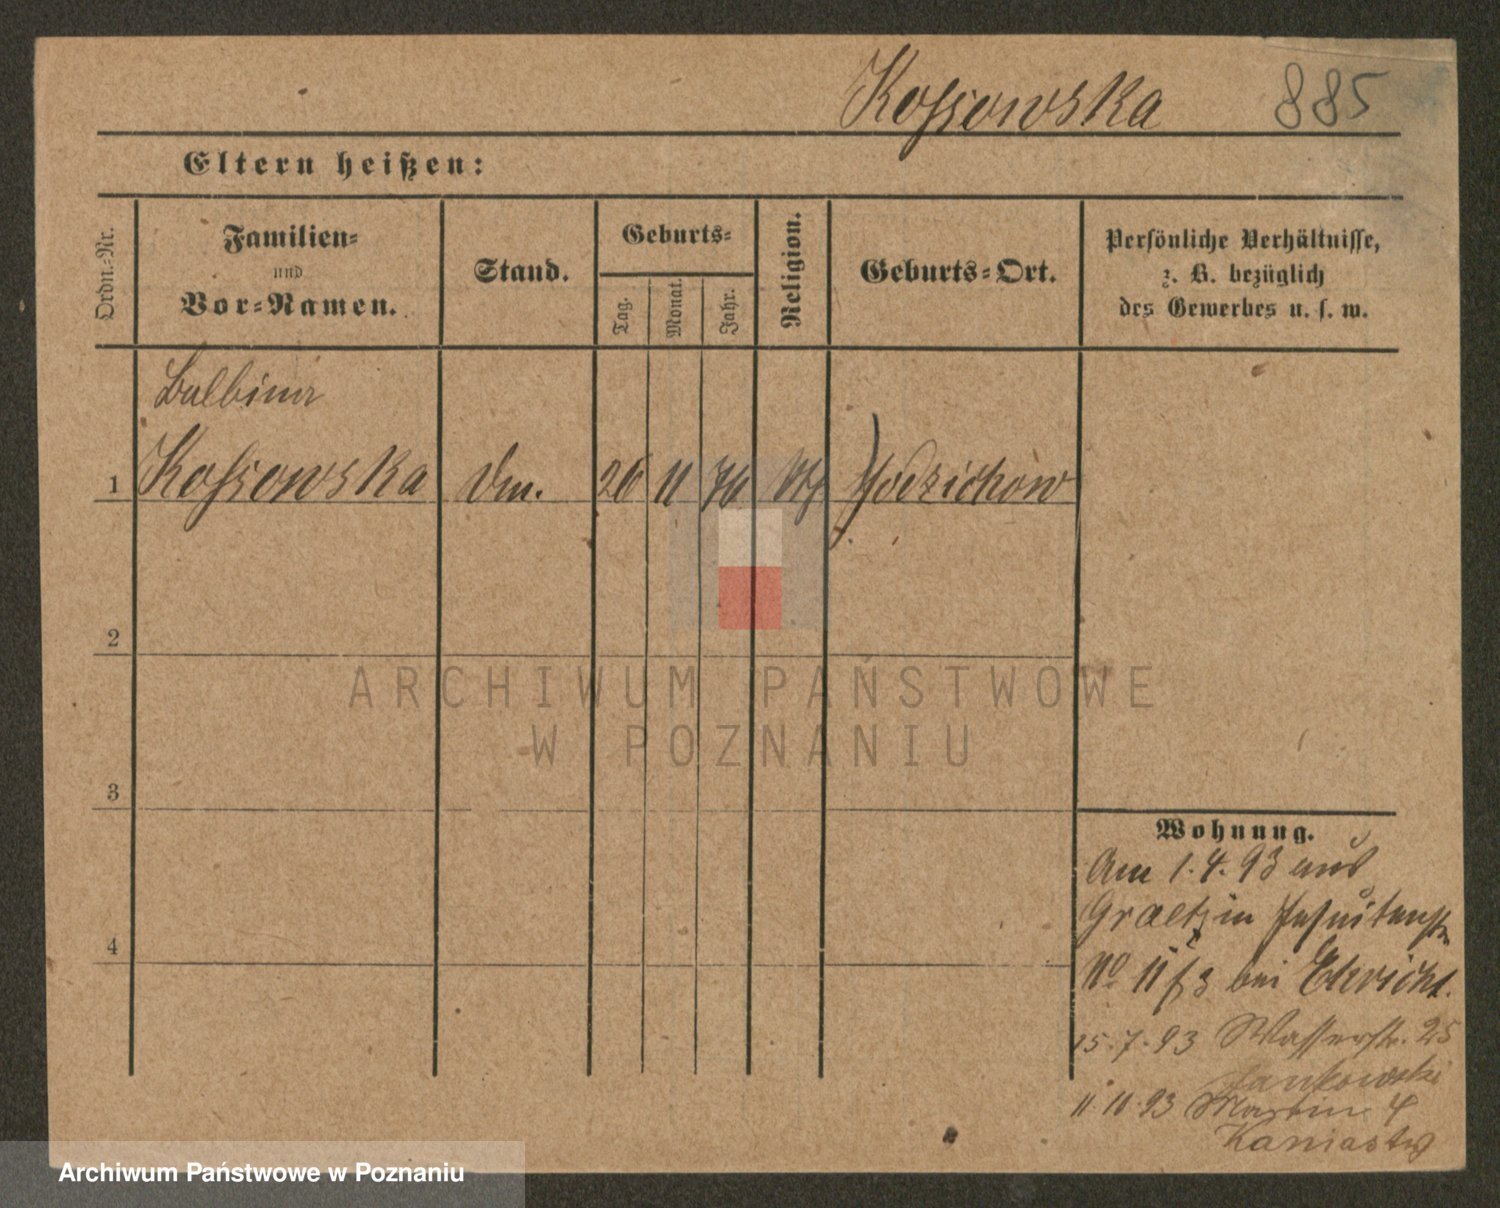 Kossowska 885
Eltern heißen:
Ordn.-Nr.
Familien-
und
Vor-Namen.
Stand.
Geburts-
Tag.
Monat.
Jahr.
Religion.
Geburts-Ort.
Persönliche Verhältnisse,
z. B. bezüglich
des Gewerbes u. s. w.
Balbina
1 Kossowska 26 11 76
2
3
4
Wohnung.
Am 1.4.93 aus
Graetz in Jesuitenstr
No 11 bei
15.7.93 Wasserstr. 25
Jankowski
11.10.93 Martin 4
ARCHIWUM PAŃSTWOWE
W POZNANIU
Archiwum Państwowe w Poznaniu